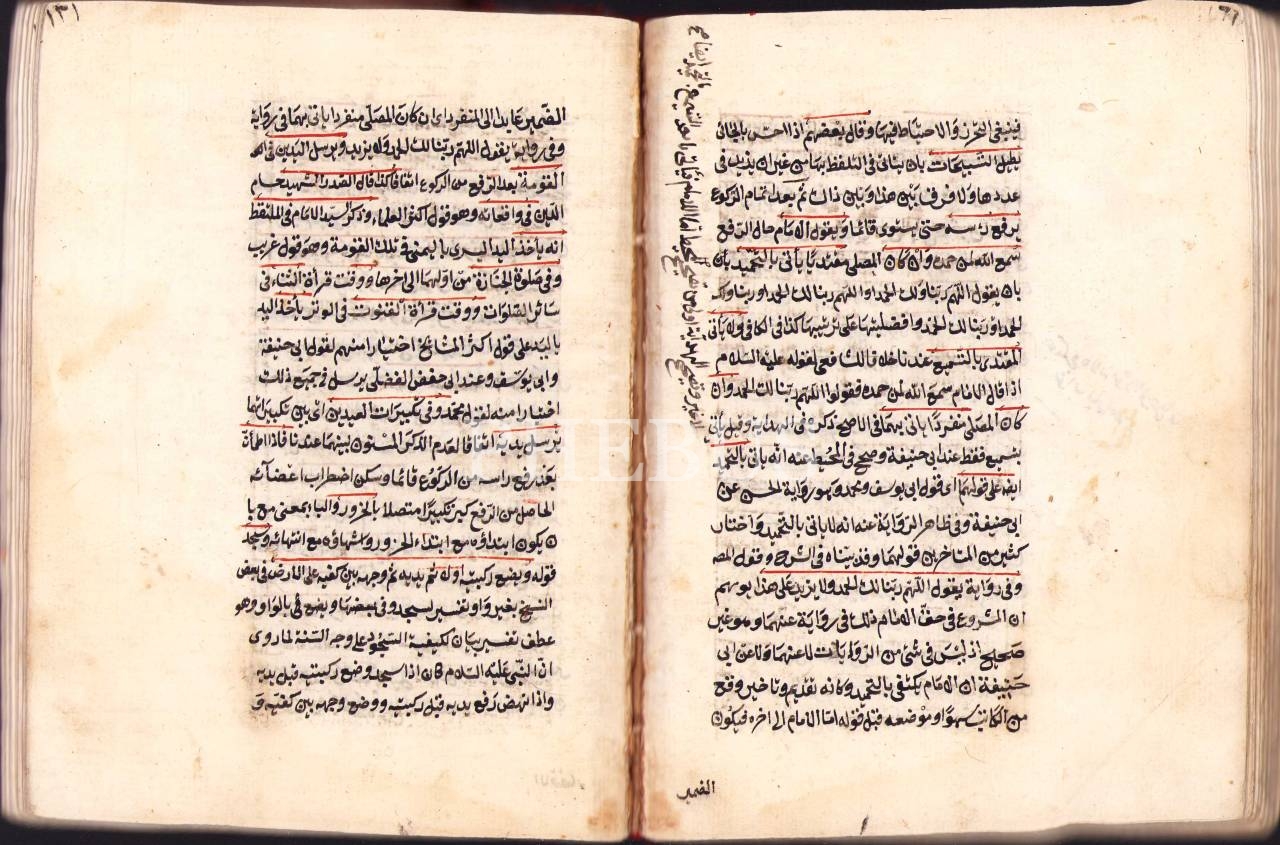 فينبغي التحرز والاحتياط فيها وقال بعضهم اذا احس بالجائي
يطيل التسبيحات بان يتانى في التلفظ بها من غير ان يزيد في
عددها ولا فرق بين هذا وبين ذالك ثم بعد اتمام الركوع
يرفع راسه حتى يستوي قائما ويقول الامام حال الرفع
سمع الله لمن حمده وان كان المصلى مقتديا ياتى بالتحميد بان
بان يقول اللهم ربنا ولك الحمد او اللهم ربنا لك الحمد او ربنا ولك
الحمد او ربنا لك الحمد وافضليتها على ترتيبها كذا في الكافي ولا ياتى
المقتدى بالتسميع عندنا خلافا للشافعي لقوله عليه السلام
اذا قال الامام سمع الله لمن حمده فقولوا اللهم ربنا لك الحمد وان
كان المصلى منفردا ياتى بهما في الاصح ذكره في الهداية وقيل ياتى
بتسميع فقط عند ابي حنيفة وصحح في المحيط عنه انه ياتى بالتحميد
على قولهما اى قول ابي يوسف ومحمد وهو رواية الحسن عن
ابي حنيفة وفي ظاهر الرواية عنه انه لا ياتى بالتحميد واختار
كثير من المتاخرين قولهما وقد بيناه في الشرح وقول المص
وفي رواية يقول اللهم ربنا لك الحمد ولا يزيد على هذا يوهم
ان المشروع في حق الامام ذلك في رواية عنهما وهو غير
صحيح اذ ليس في شئ من الروايات لا عنهما ولا عن ابي
حنيفة ان الامام يكتفى بالتحميد وكانه تقديم وتاخير وقع
من الكاتب سهوا وموضعه قبل قوله اما الامام الى اخره فيكون
الضمير
١٣١
الضمير عايدا الى المنفرد اى ان كان المصلى منفردا ياتى بهما في رواية
وفي رواية يقول اللهم ربنا لك الحمد ولا يزيد ويرسل اليدين في
القومة بعد الرفع من الركوع اتفاقا كذا قال الصدر الشهيد حسام
الدين في واقعاته وهو قول اكثر العلماء وذكر سيد الامام في الملتقط
انه ياخذ اليد اليسرى باليمنى في تلك القومة وهو قول غريب
وفي صلوة الجنازة من اولهما الى اخرها ووقت قرأة الثناء في
سائر الصلوات ووقت قرأة القنوت في الوتر ياخذ اليد
باليد على قول اكثر المشايخ اختيارا منهم لقول ابي حنيفة
وابي يوسف وعند ابي حفص الفضلي يرسل في جميع ذلك
اختيارا منه لقول محمد وفي تكبيرات العيدين اى بين تكبيراتها
يرسل يديه اتفاقا لعدم الذكر المسنون بينهما عندنا فاذا اطمأن
بعد رفع راسه من الركوع قائما وسكن اضطراب اعضآئه
الحاصل من الرفع كبر تكبيرا متصلا بالخرور والباء بمعنى مع با
ن يكون ابتداؤه مع ابتداء الخرور وانتهاؤه مع انتهائه وسجد
قوله ويضع ركبتيه اولا ثم يديه ثم وجهه بين كفيه على الارض في بعض
النسخ بغير واو تفسير لسجد وفي بعضها ويضع بالواو وهو
عطف تفسير بيان لكيفية السجود على وجه السنة لما روى
ان النبي عليه السلام كان اذا سجد وضع ركبتيه قبل يديه
واذا نهض رفع يديه قبل ركبتيه ووضع وجهه بين كفيه و